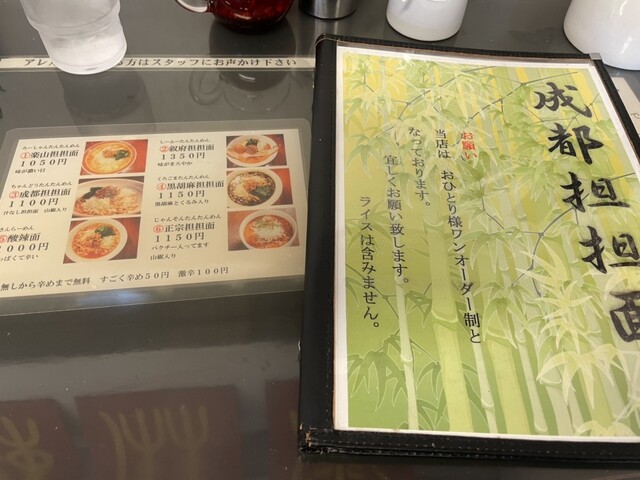 方はスタッフにお声かけ下さい
らーしゃんたんたんめん
①楽山担担面
1050円
味が濃い目
ちゃんどうたんたんめん
③成都担担面
1100円
汁なし担担面 山椒入り
さんらーめん
⑤酸辣面
000円
っぱくて辛い
しーふーたんたんめん
②叙府担担面
1350円
味がまろやか
くろごまたんたんめん
④黒胡麻担担面
1150円
黒胡麻とくるみ入り
じゃんそんたんたんめん
⑥正宗担担面
1150円
パクチー入ってます
山椒入り
無しから辛めまで無料 すごく辛め50円 激辛100円
成都担担面
お願い
当店は おひとり様ワンオーダー制と
なっております。
宜しくお願い致します。
ライスは含みません。